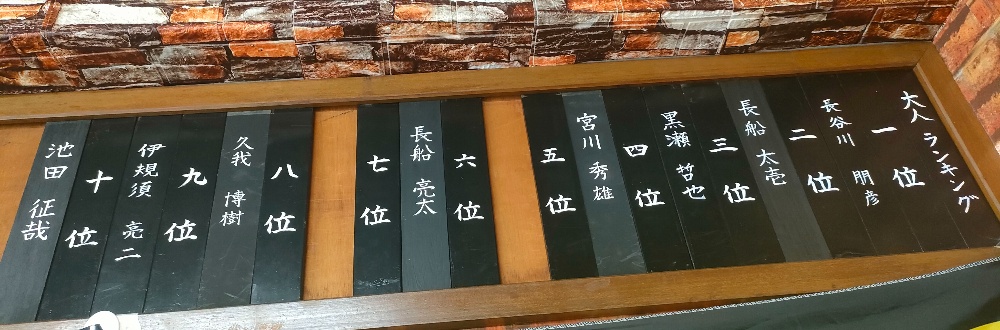 大人ランキング
一位
長谷川 朋彦
二位
長船 太壱
三位
黒瀬 哲也
四位
宮川 秀雄
五位
六位
長船 亮太
七位
八位
久我 博樹
九位
伊規須 亮二
十位
池田 征哉